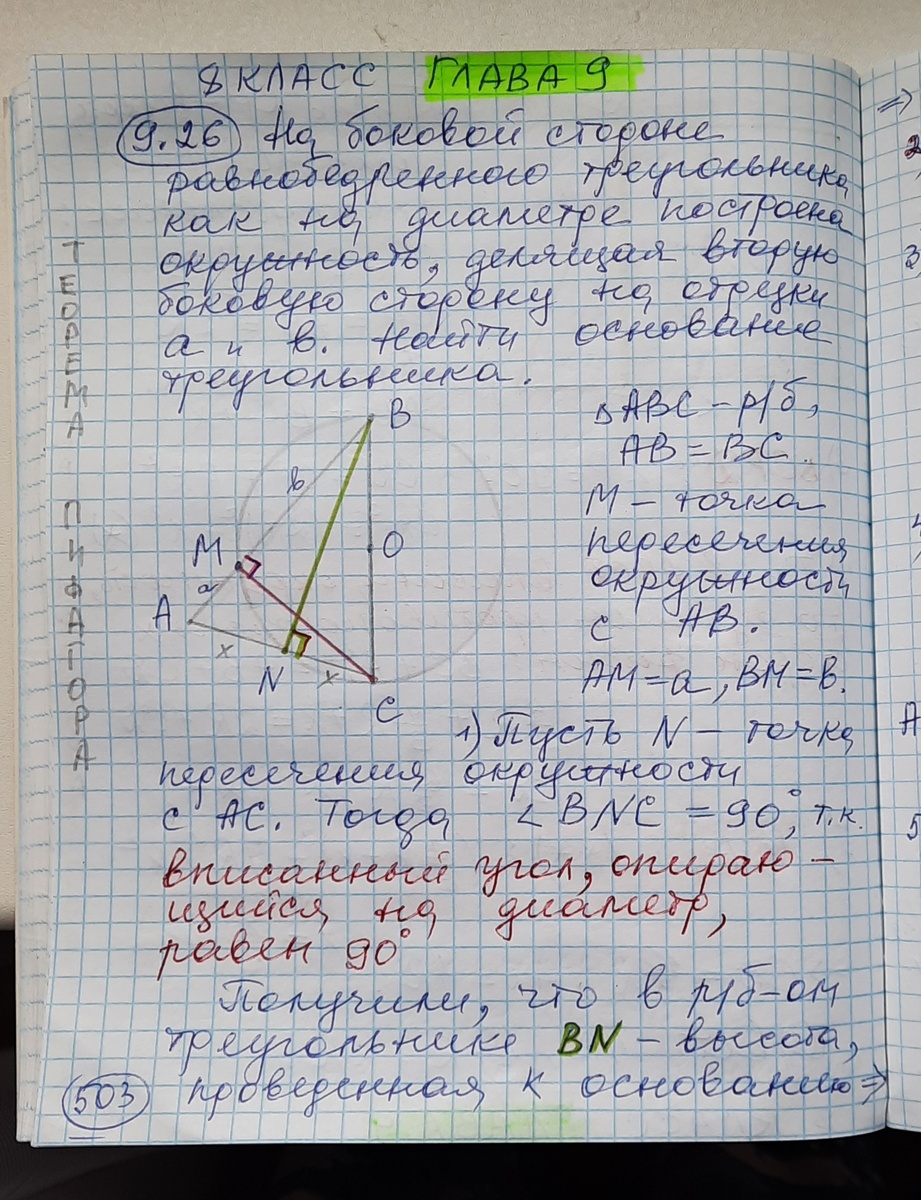 8 КЛАСС ГЛАВА 9
9.26 На боковой стороне
равнобедренного треугольника,
как на диаметре построена
окружность, делящая вторую
боковую сторону на отрезки
a и b. Найти основание
треугольника.
ТЕОРЕМА ПИФАГОРА
B
b
M
O
a
A
x
N
x
C
△ABC – р/б,
AB = BC.
M – точка
пересечения
окружности
с AB.
AM = a, BM = b.
1) Пусть N – точка
пересечения окружности
с AC. Тогда ∠BNC = 90°, т.к.
вписанный угол, опираю–
щийся на диаметр,
равен 90°
Получили, что в р/б-ом
треугольнике BN – высота,
проведенная к основанию ⇒
503
⇒
2
3
4
A
5